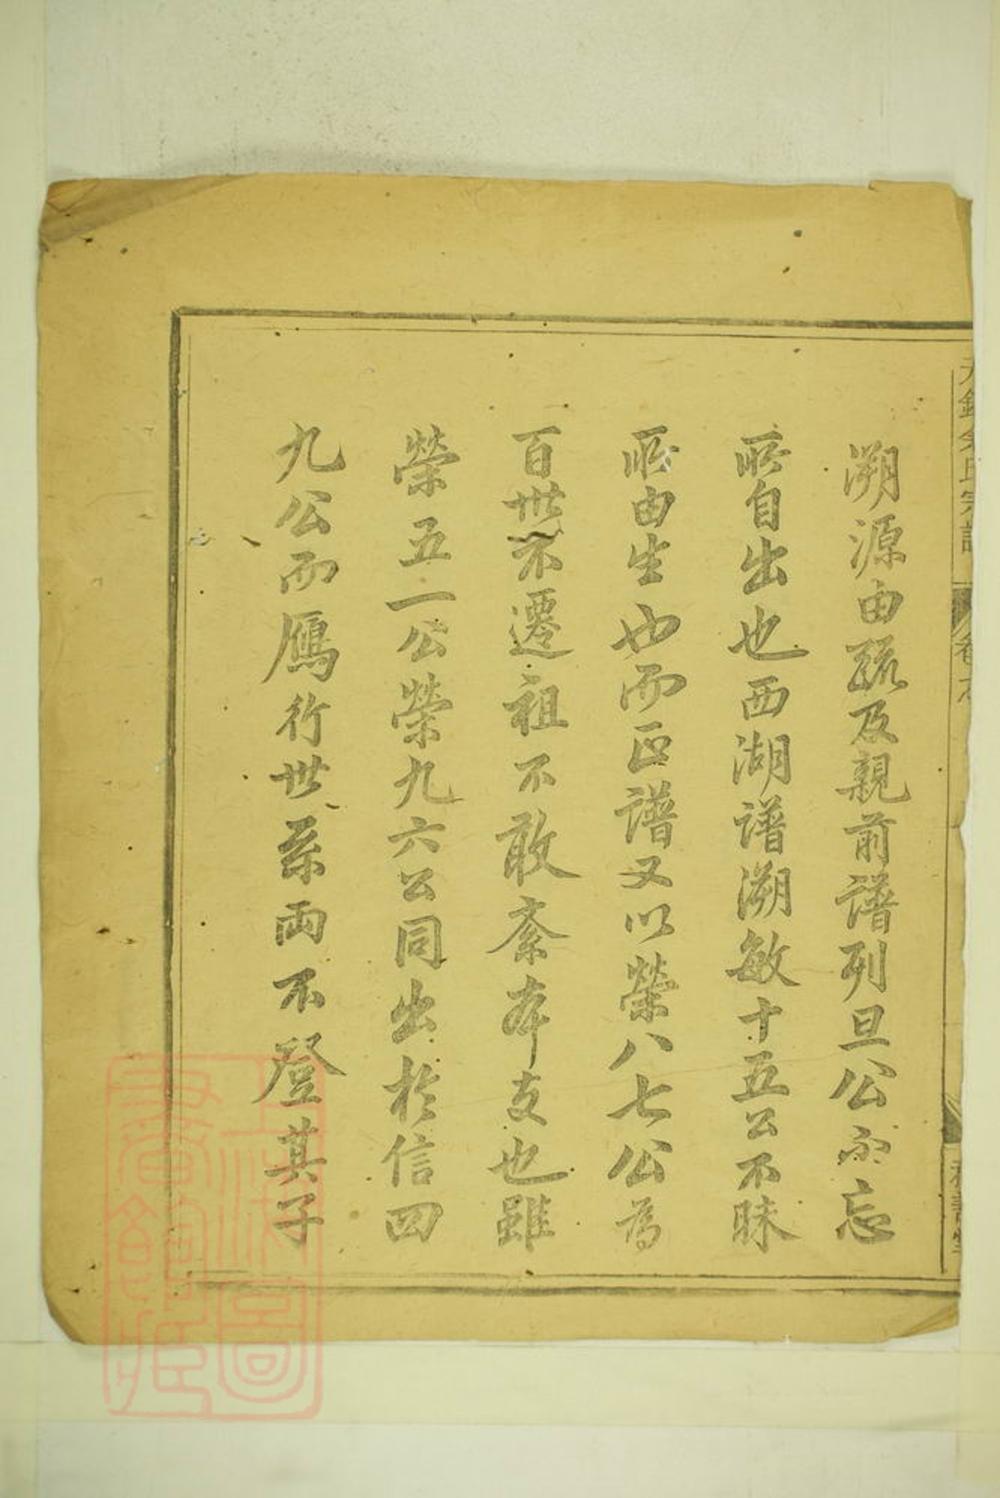 溯源由疏及親前譜列旦公不忘
所自出也西湖譜溯敏十五公不昧
所由生也而正譜又以榮八七公為
百世不遷祖不敢紊本支也雖
榮五一公榮九六公同出於信四
九公而鴈行世系兩不登其子
氏宗譜